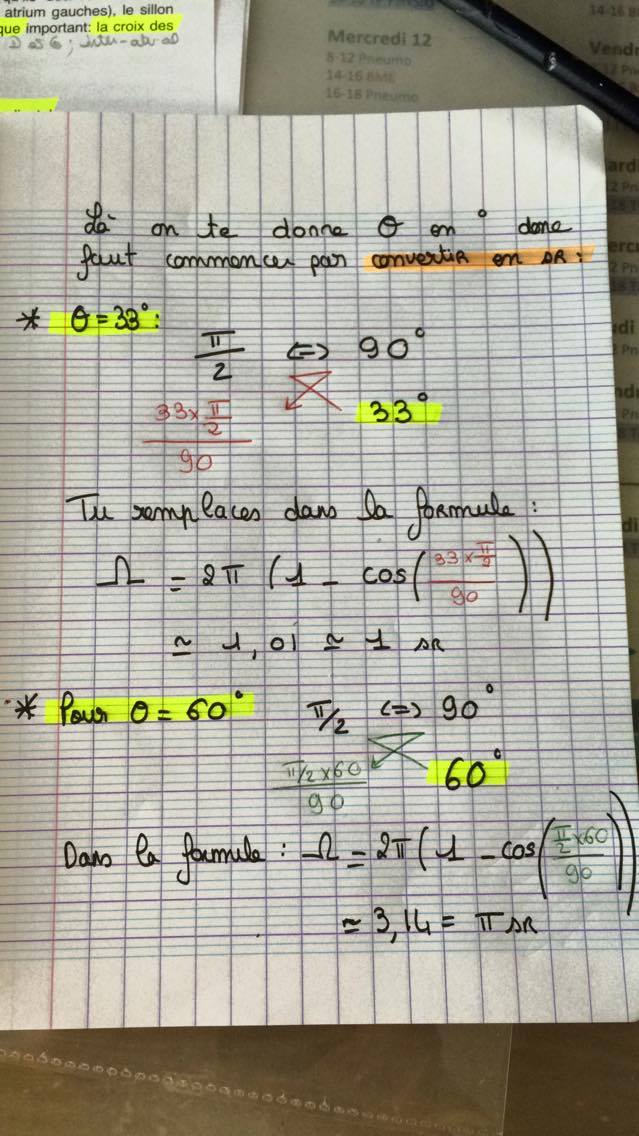 atrium gauches), le sillon
que important: la croix des
Mercredi 12
8-12 Pneumo
14-16 BME
16-18 Pneumo
14-16 B
Vendr
Là on te donne θ en ° donc
faut commencer par convertir en SR :
* θ = 33° :
π/2 <=> 90°
33°
(33 × π/2) / 90
Tu remplaces dans la formule :
Ω = 2π (1 - cos((33 × π/2) / 90))
≃ 1,01 ≃ 1 SR
* Pour θ = 60° π/2 <=> 90°
60°
(π/2 × 60) / 90
Dans la formule : Ω = 2π (1 - cos((π/2 × 60) / 90))
≃ 3,14 = π SR